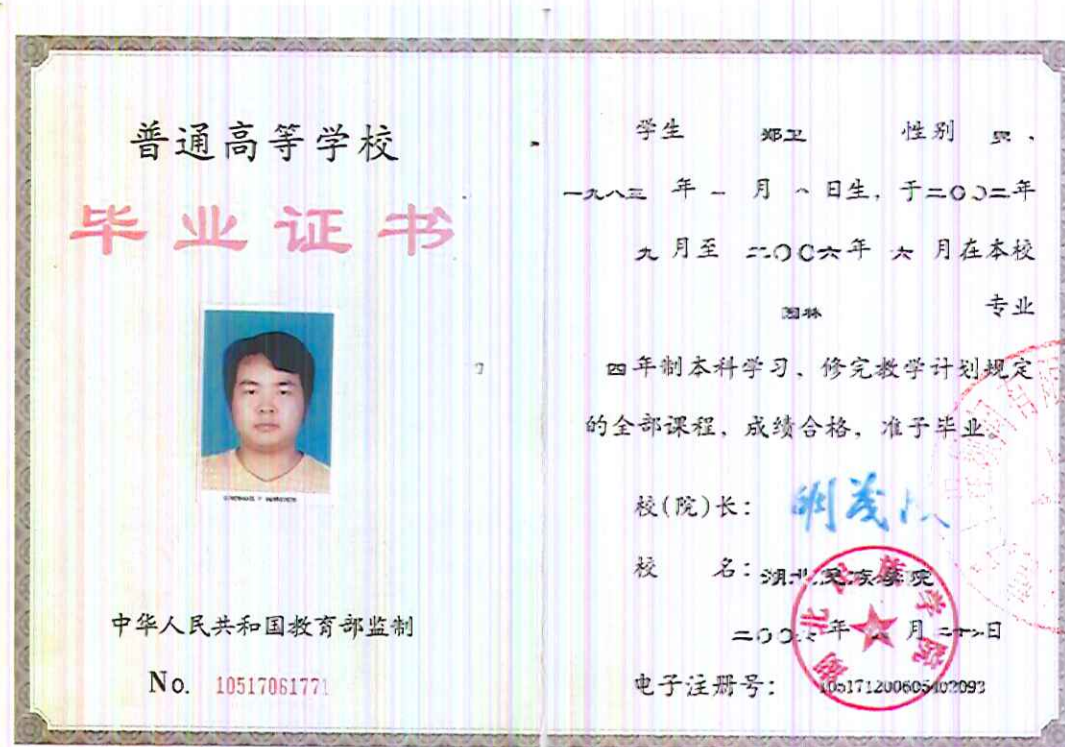 普通高等学校
毕业证书
中华人民共和国教育部监制
No. 10517061771
学生 郑卫 性别
一九八三 年 一 月 日生，于二〇〇二年
九 月至 二〇〇六年 六 月在本校
园林 专业
四年制本科学习，修完教学计划规定
的全部课程，成绩合格，准予毕业。
校(院)长：
校 名：湖北民族学院
二〇〇 年 月 日
电子注册号： 105171200605402093
湖北民族学院